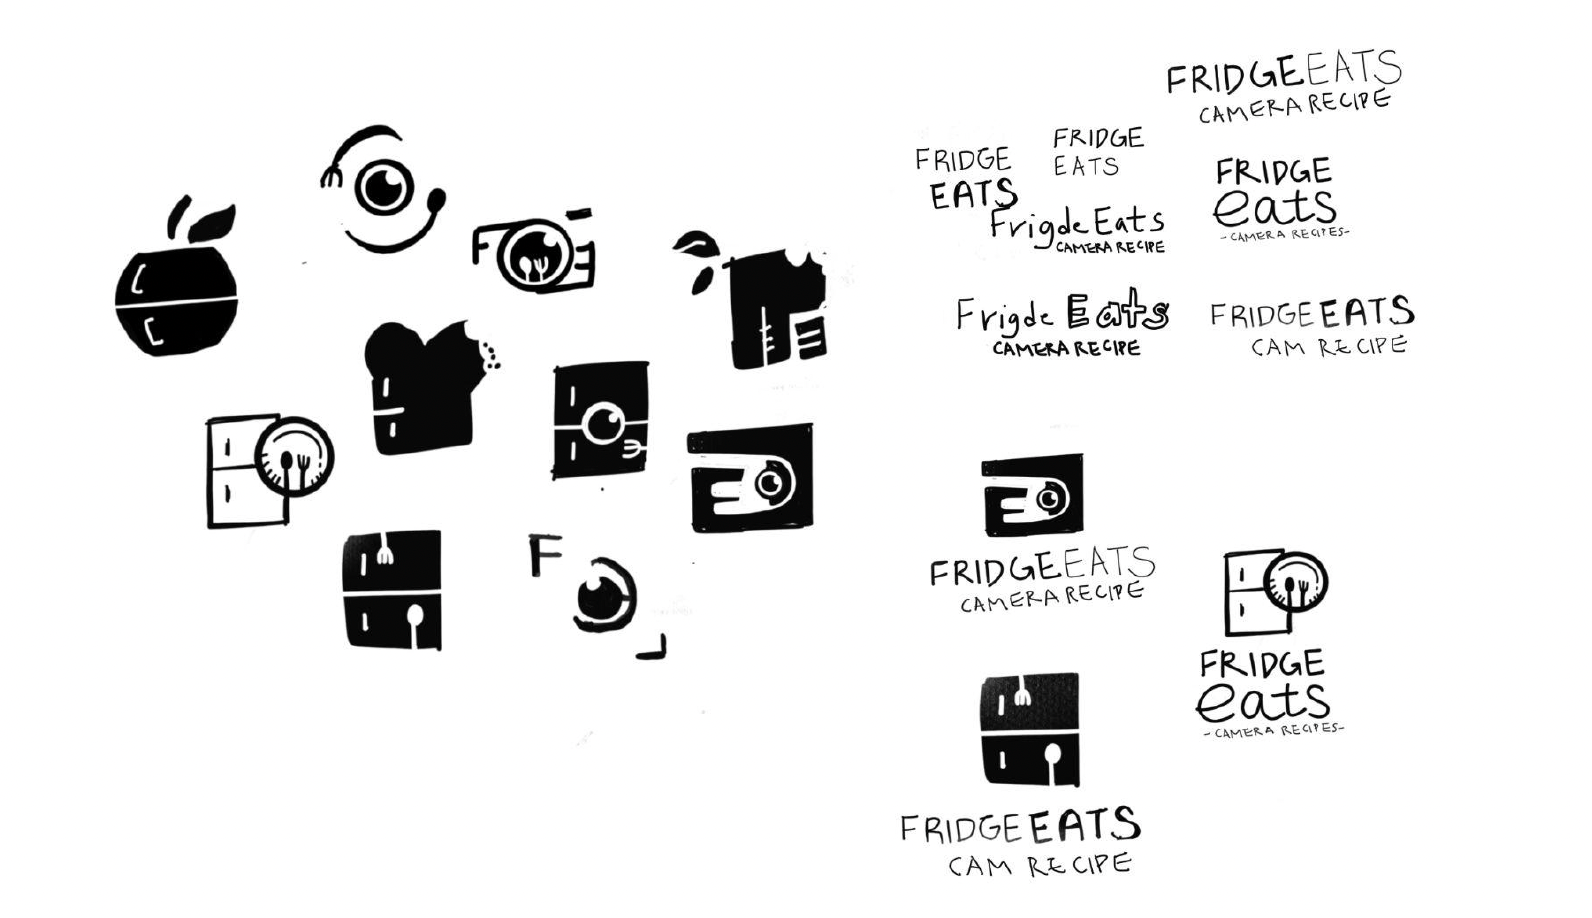 FRIDGEEATS
CAMERA RECIPE
FRIDGE
EATS
FRIDGE
EATS
FRIDGE
eats
-CAMERA RECIPES-
Frigde Eats
CAMERA RECIPE
Frigde Eats
CAMERA RECIPE
FRIDGEEATS
CAM RECIPE
F
E
F
FRIDGEEATS
CAMERA RECIPE
FRIDGE
eats
-CAMERA RECIPES-
FRIDGEEATS
CAM RECIPE